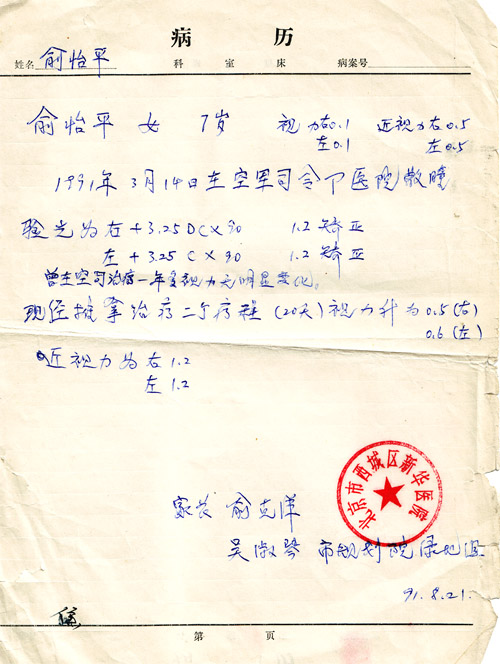 病 历
姓名 俞怡平 科 室 床 病案号
俞怡平 女 7岁 视力右0.1 近视力右0.5
左0.1 左0.5
1991年3月14日在空军司令下医院散瞳
验光为右+3.25DC×90 1.2矫正
左+3.25C×90 1.2矫正
曾在空司治疗一年多视力无明显变化。
现经推拿治疗二个疗程(20天)视力升为0.5(右)
0.6(左)
近视力为右1.2
左1.2
北京市西城区新华医院
家长 俞克洋
吴淑琴 市规划院
91.8.21.
第 页